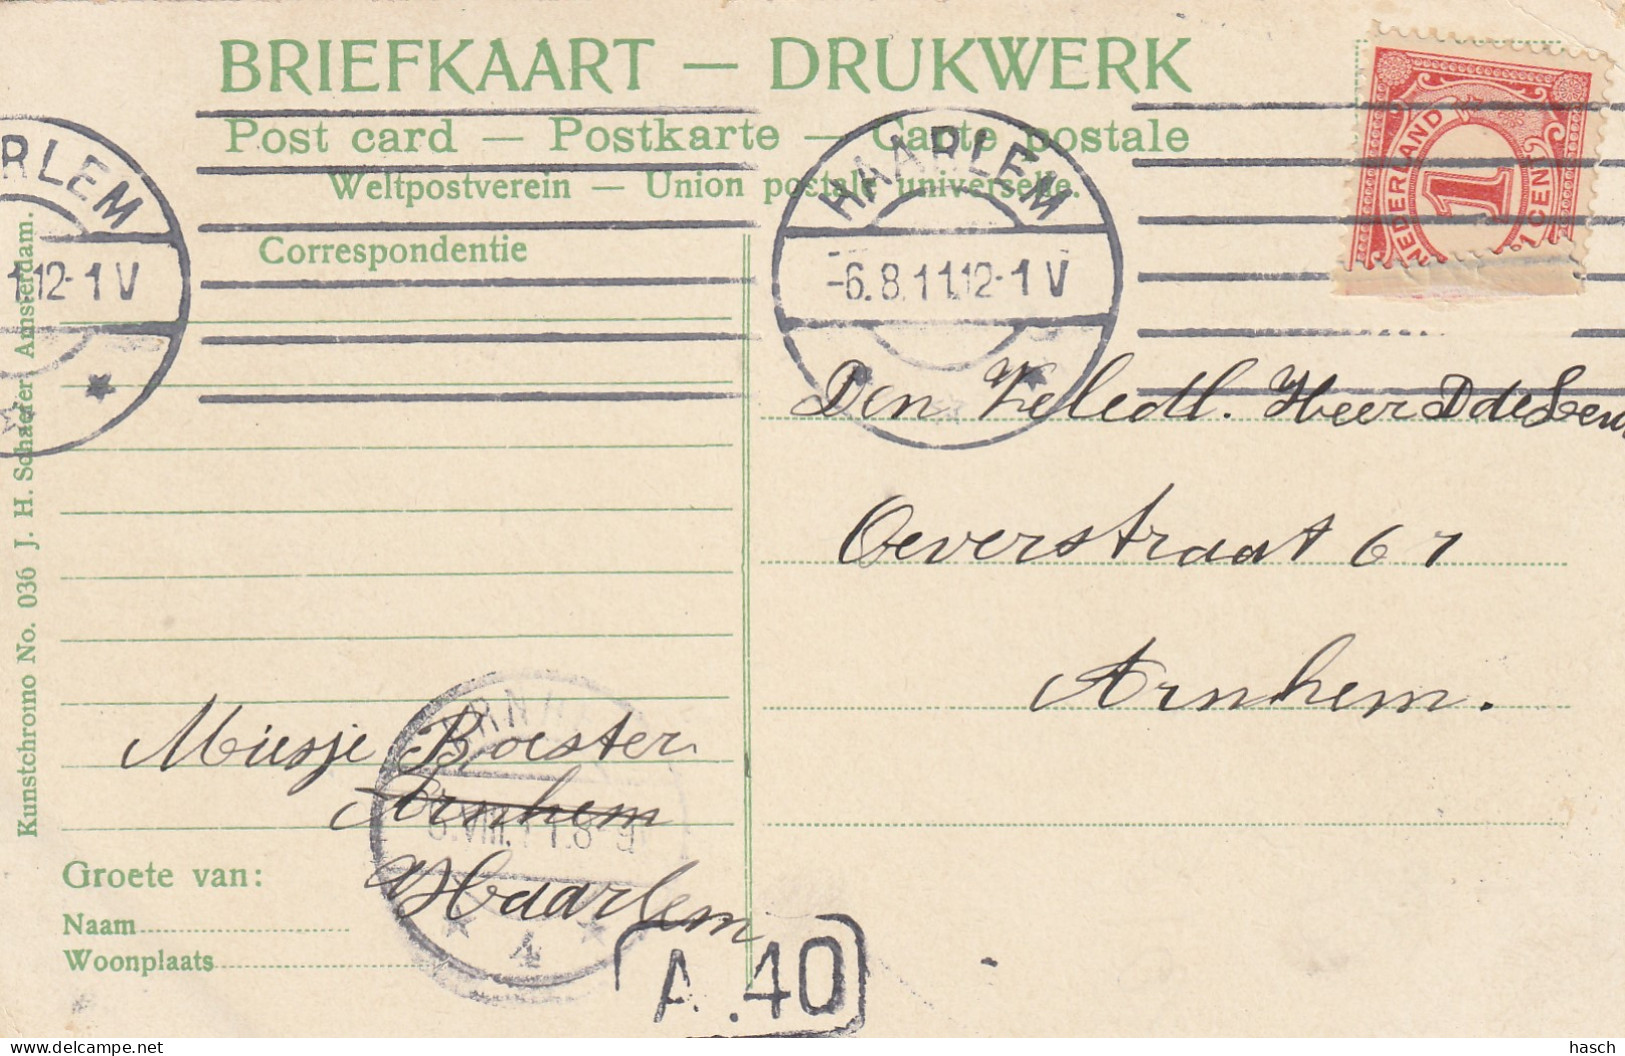 BRIEFKAART — DRUKWERK
Post card — Postkarte — Carte postale
Weltpostverein — Union postale universelle.
Correspondentie
HAARLEM
-6.8.11.12-1V
RLEM
1.12-1V
NEDERLAND
1
1 CENT
Den Heer
Oeverstraat 67
Arnhem.
Miesje Boester
Arnhem
Haarlem
ARNH
.VIII.11.8-9
4
A.40
Groete van:
Naam
Woonplaats
Kunstchromo No. 036 J. H. Schaefer Amsterdam.
hasch